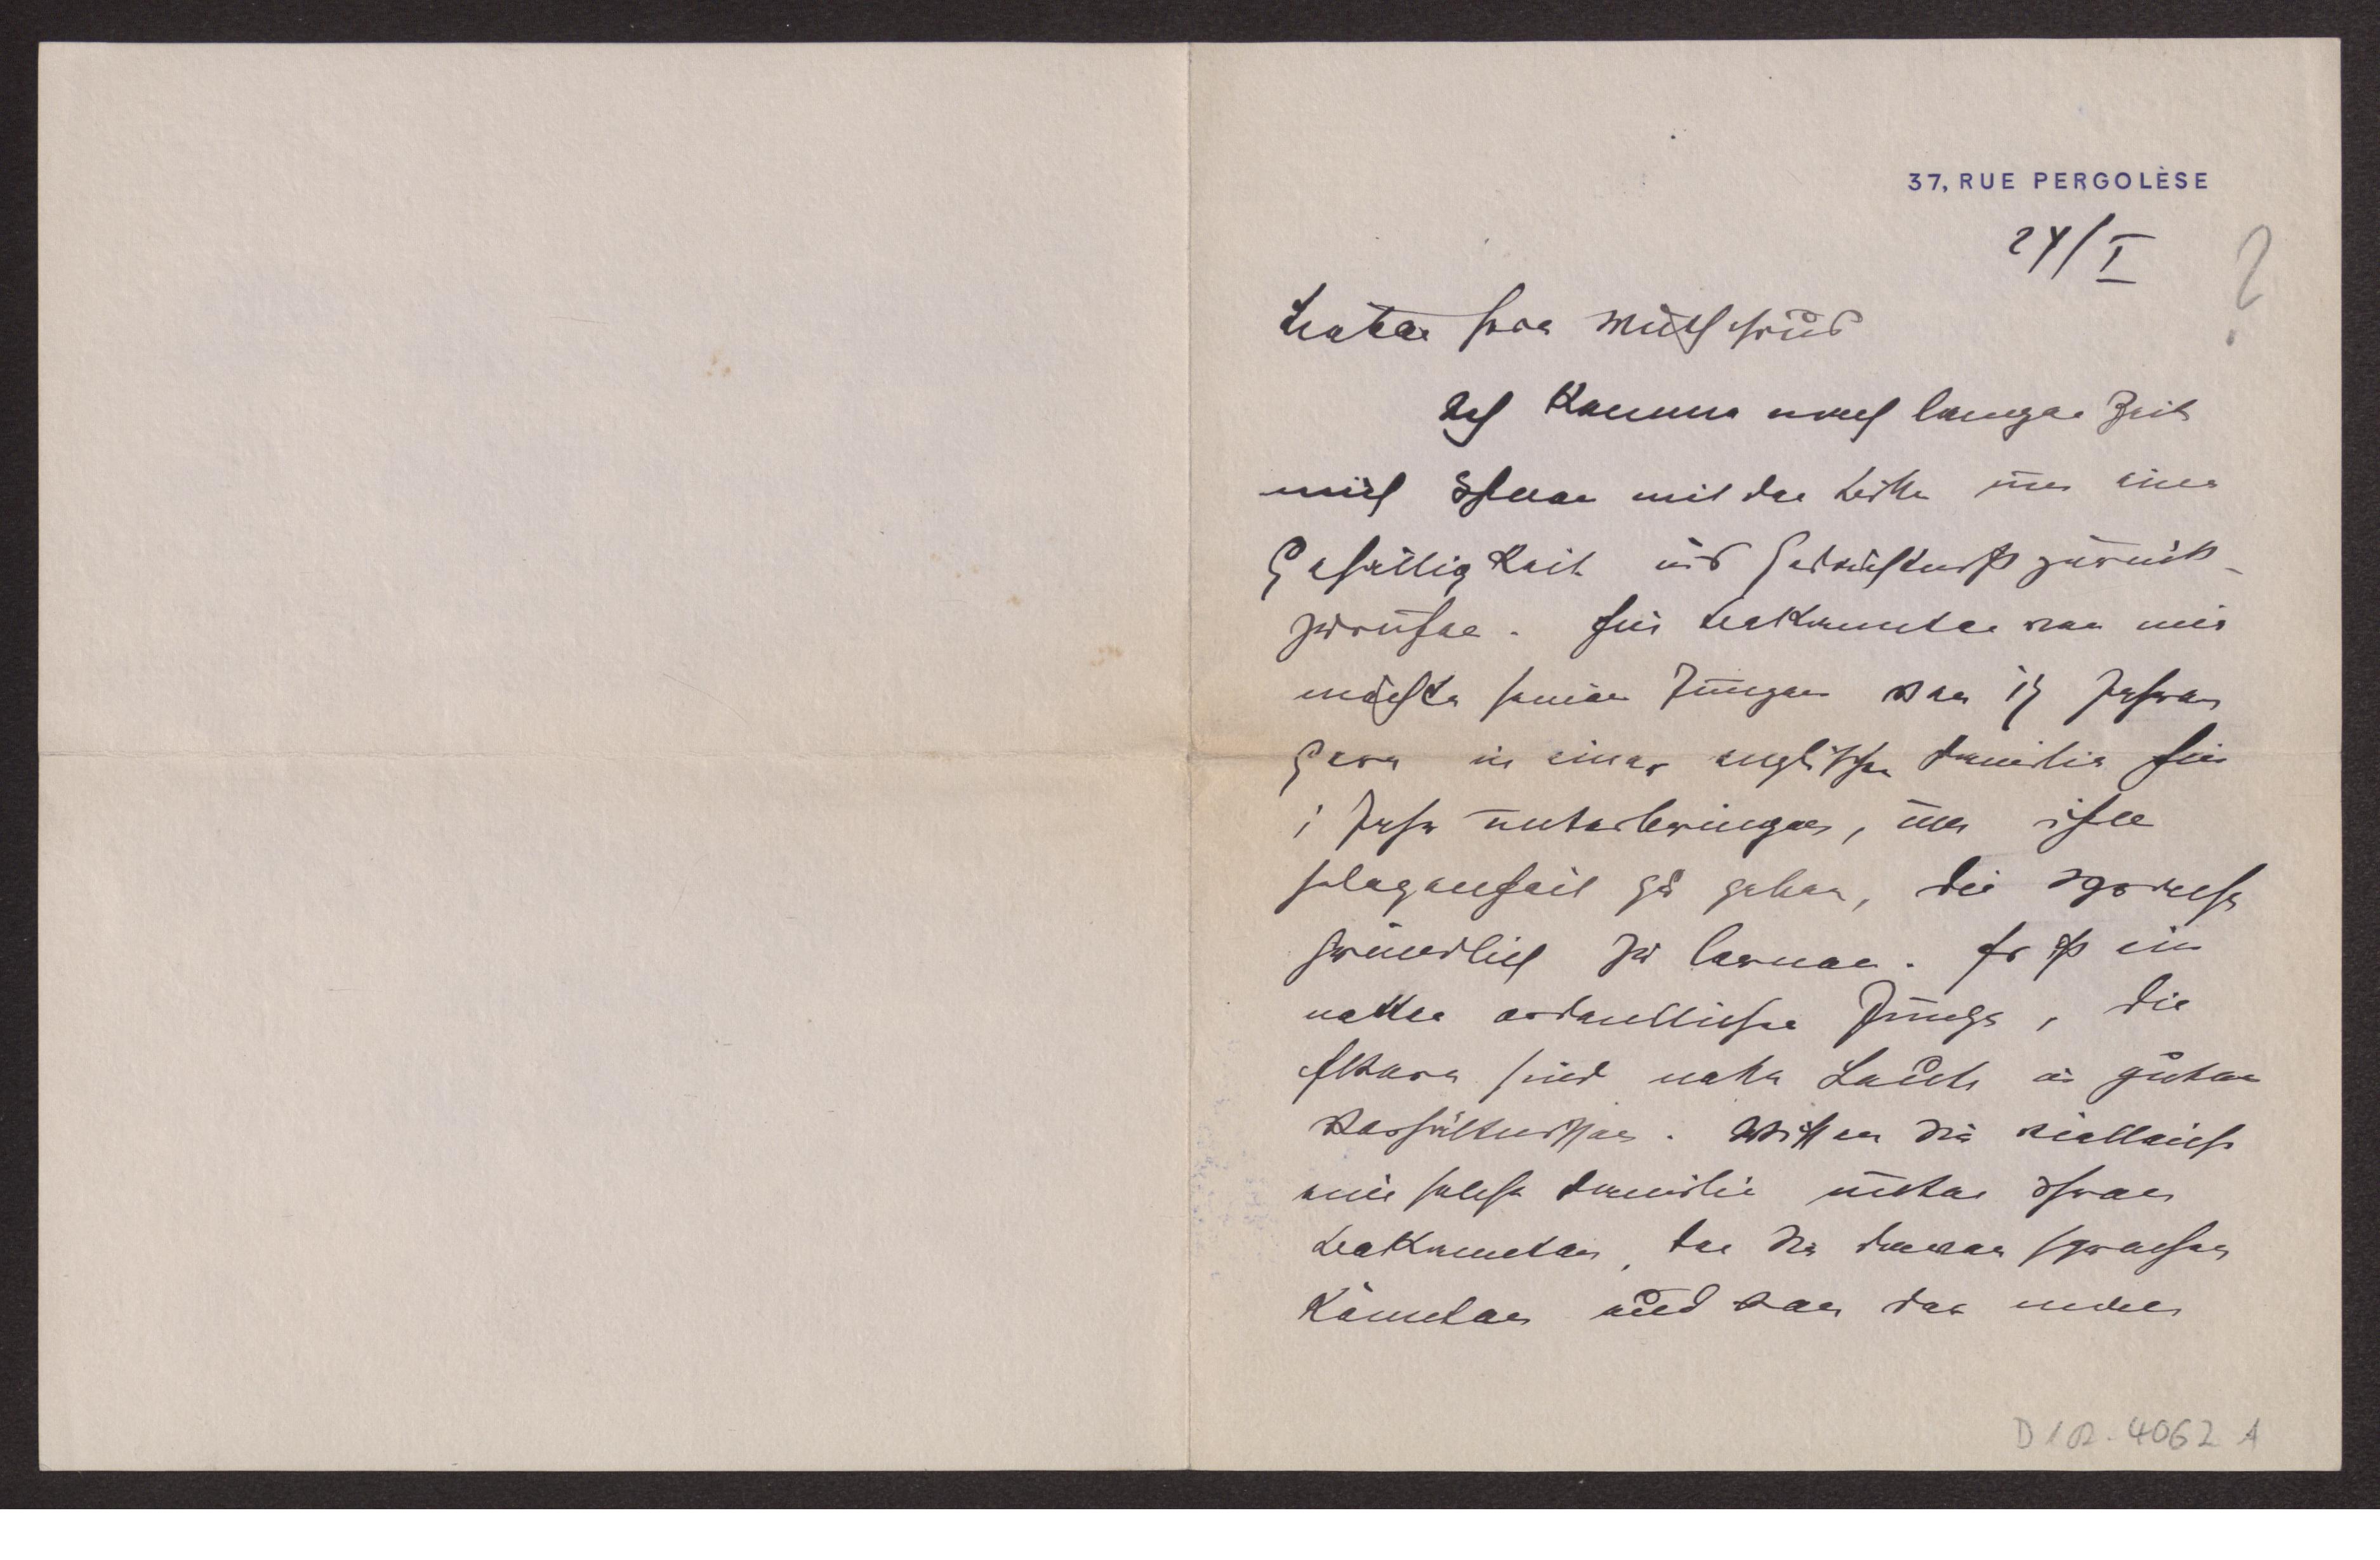 37, RUE PERGOLÈSE
24/I
?
Lieber Herr
Ich komme nach langer Zeit
mich Ihnen mit der Bitte um eine
Gefälligkeit ins Gedächtnis zurück-
zurufen. Ein Bekannter von mir
möchte seinen Jungen von 17 Jahren
gern in einer englischen Familie für
1 Jahr unterbringen, um ihm
Gelegenheit zu geben, die Sprache
gründlich zu lernen. Er ist ein
netter ordentlicher Junge, die
Eltern sind nette Leute in guten
Verhältnissen. Wissen Sie vielleicht
eine solche Familie unter Ihren
Bekannten, die Sie davon sprechen
könnten und von der
D 1 4062 A